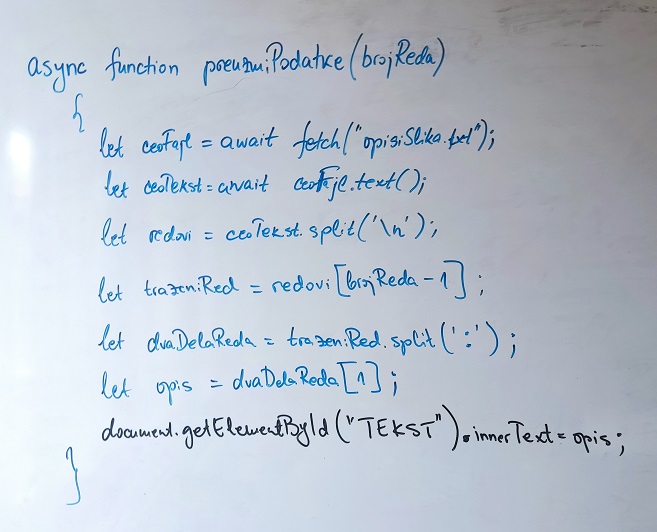 async function preuzmiPodatke(brojReda)
{
let ceoFajl = await fetch("opisiSlika.txt");
let ceoTekst = await ceoFajl.text();
let redovi = ceoTekst.split('\n');
let trazeniRed = redovi[brojReda - 1];
let dvaDelaReda = trazeniRed.split(':');
let opis = dvaDelaReda[1];
document.getElementById("TEKST").innerText = opis;
}